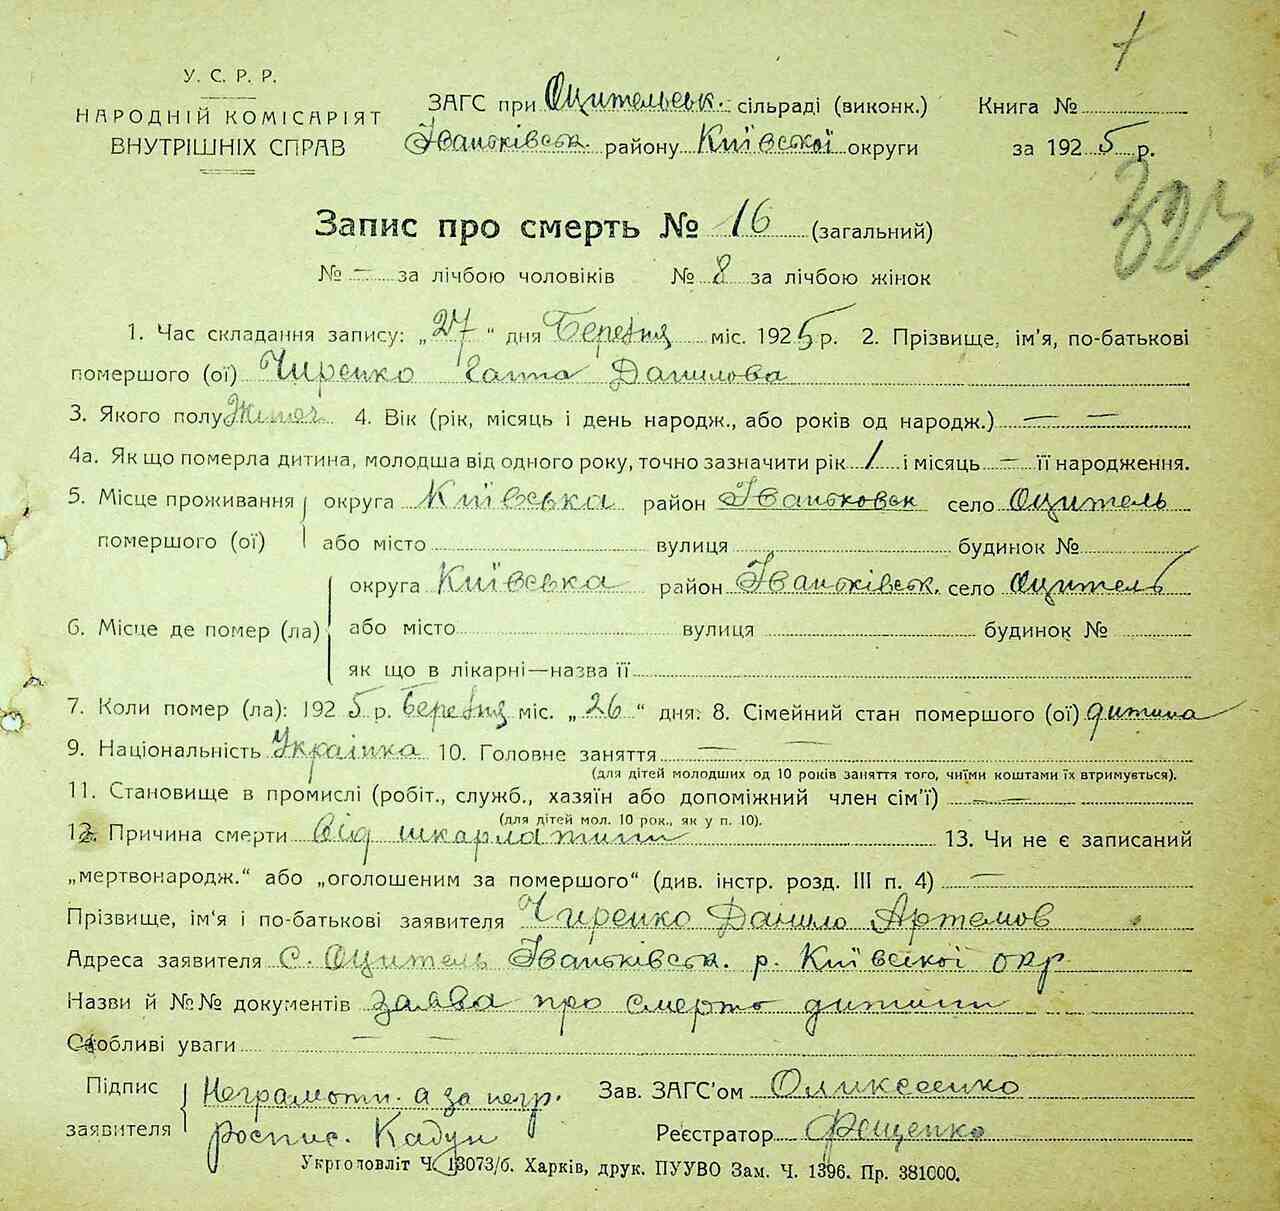 1
У. С. Р. Р.
НАРОДНІЙ КОМІСАРІЯТ
ВНУТРІШНІХ СПРАВ
ЗАГС при Оцительськ. сільраді (виконк.)
Іваньківськ. району Київської округи
Книга №
за 1925 р.
Запис про смерть № 16 (загальний)
№ — за лічбою чоловіків № 8 за лічбою жінок
1. Час складання запису: „27“ дня Березня міс. 1925 р. 2. Прізвище, ім'я, по-батькові
помершого (ої) Чиренко Ганна Данилова
3. Якого полу Жіноч 4. Вік (рік, місяць і день народж., або років од народж.) — —
4а. Як що померла дитина, молодша від одного року, точно зазначити рік 1 і місяць — її народження.
5. Місце проживання помершого (ої) округа Київська район Іваньковск село Оцитель
або місто вулиця будинок №
6. Місце де помер (ла) округа Київська район Іваньківськ. село Оцитель
або місто вулиця будинок №
як що в лікарні—назва її
7. Коли помер (ла): 1925 р. Березня міс. „26“ дня. 8. Сімейний стан помершого (ої) дитина
9. Національність Українка 10. Головне заняття — —
(для дітей молодших од 10 років заняття того, чиїми коштами їх втримується).
11. Становище в промислі (робіт., служб., хазяїн або допоміжний член сім'ї) — —
(для дітей мол. 10 рок., як у п. 10).
12. Причина смерти від шкарлатини 13. Чи не є записаний
„мертвонародж.“ або „оголошеним за помершого“ (див. інстр. розд. III п. 4) —
Прізвище, ім'я і по-батькові заявителя Чиренко Данило Артемов
Адреса заявителя с. Оцитель Іваньківськ. р. Київської окр
Назви й №№ документів заява про смерть дитини
Особливі уваги — —
Підпис заявителя Неграмотн. а за негр.
роспис. Кадун
Зав. ЗАГС'ом Оликсеенко
Реєстратор Фещенко
Укрголовліт Ч. 13073/б. Харків, друк. ПУУВО Зам. Ч. 1396. Пр. 381000.